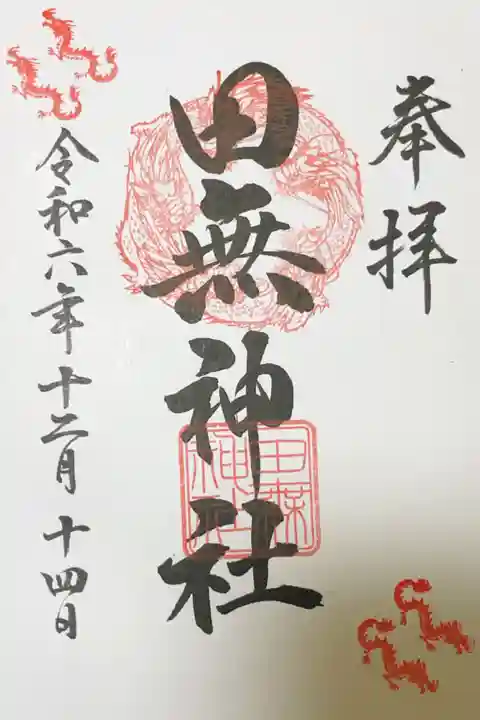 奉拝
田無神社
令和六年十二月十四日
田無神社